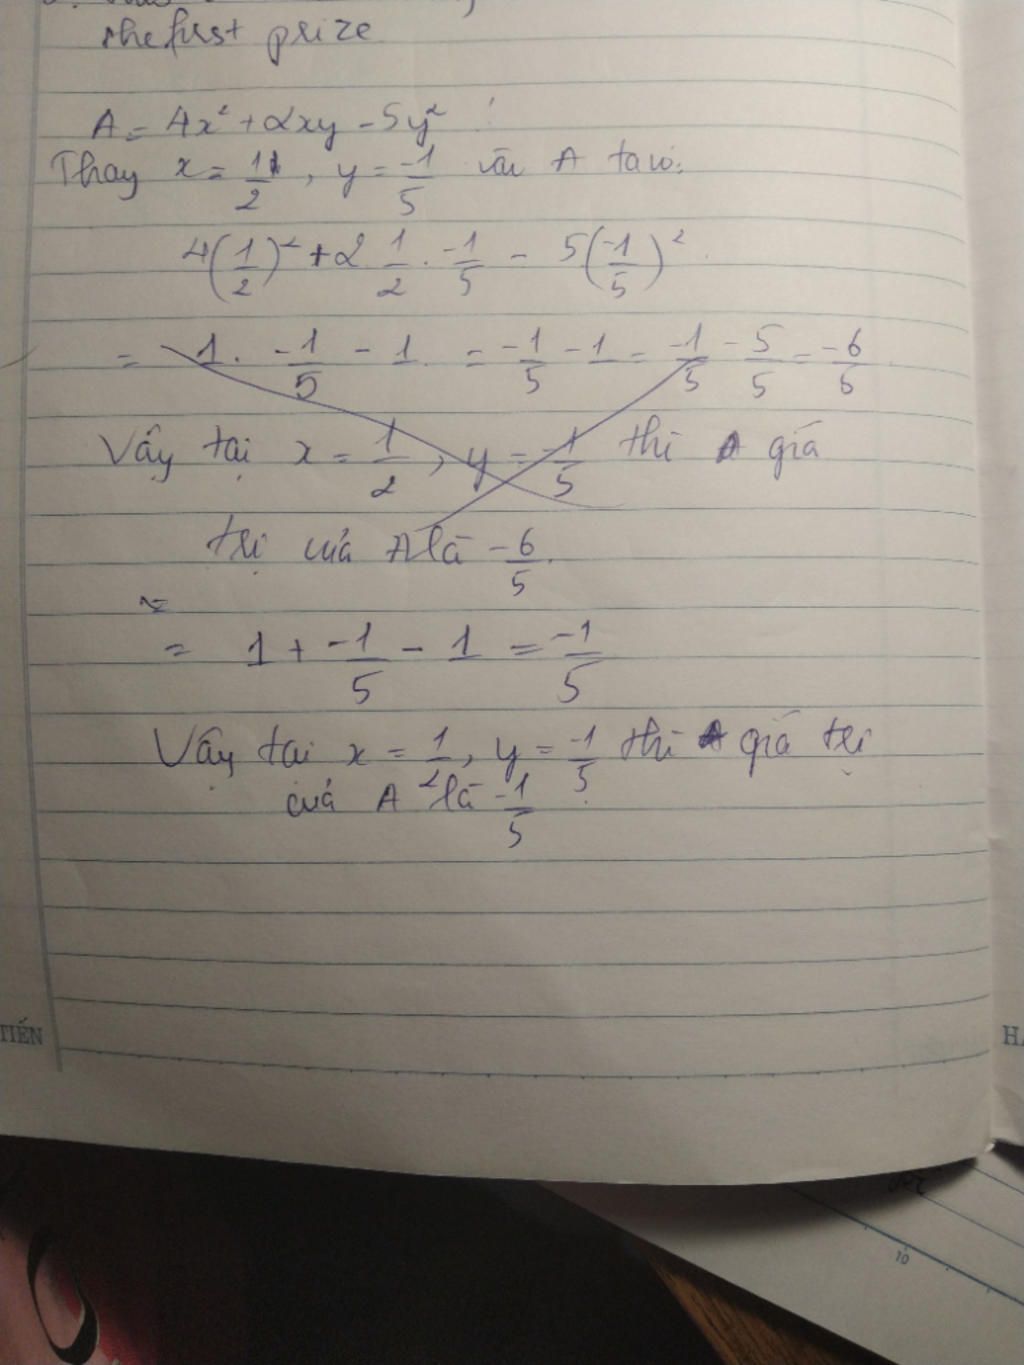 the first prize
A = 4x² + 2xy - 5y²
Thay x = 11/2, y = -1/5 vào A ta có:
4(1/2)² + 2 1/2 . -1/5 - 5(-1/5)²
= 1 . -1/5 - 1 = -1/5 - 1 = -1/5 - 5/5 = -6/6
Vậy tại x = 1/2, y = -1/5 thì giá
trị của A là -6/5.
=
= 1 + -1/5 - 1 = -1/5
Vậy tại x = 1/2, y = -1/5 thì giá trị
của A là -1/5
TIẾN
HA
10